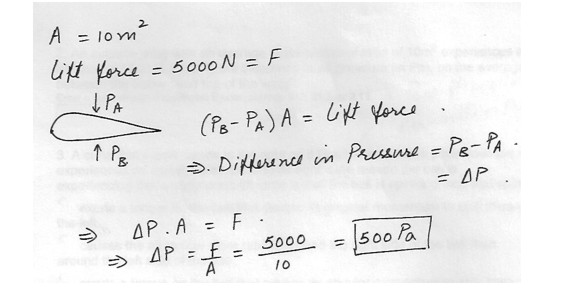 A = 10m²
Lift force = 5000N = F
↓ PA
(PB - PA) A = Lift force .
↑ PB
⇒. Difference in Pressure = PB - PA .
= ΔP .
⇒ ΔP . A = F .
⇒ ΔP = F/A = 5000/10 = 500 Pa